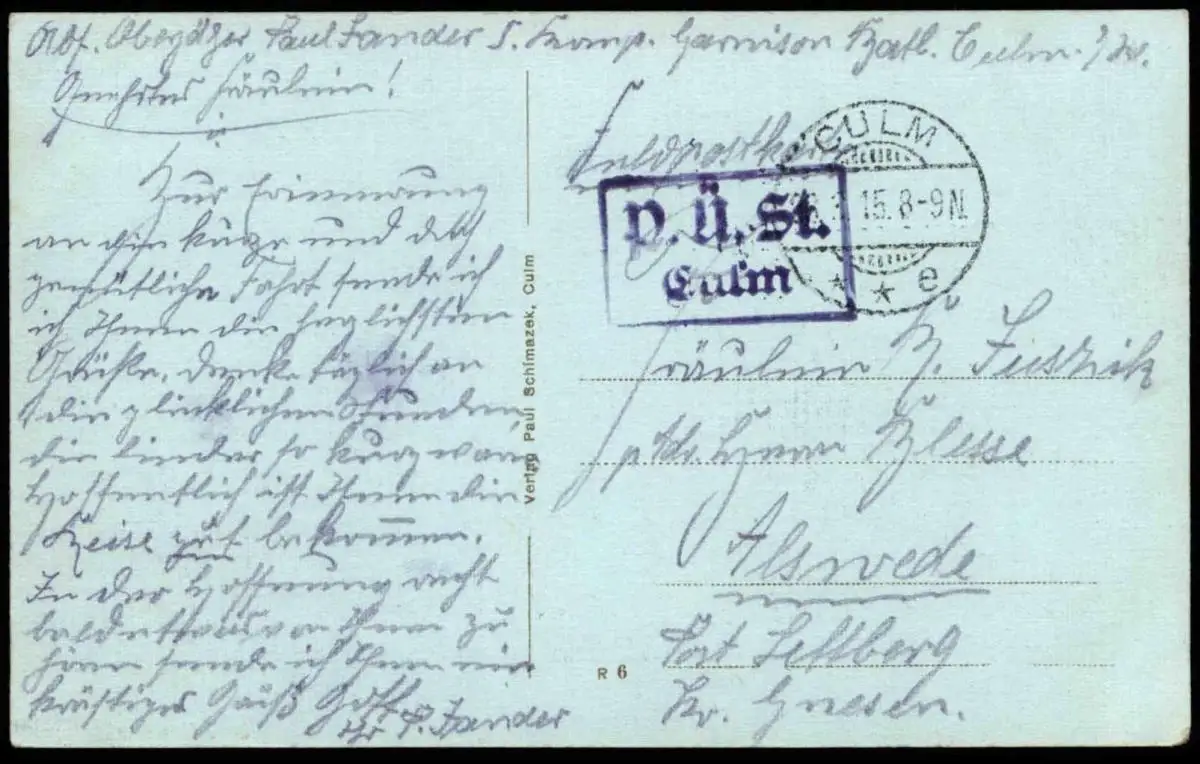 Abs. Oberjäger Paul Zander 5. Komp. Garnison Batl. Culm. /W.
Geehrtes Fräulein!
Zur Erinnerung
an die kurze und doch
gemütliche Fahrt sende ich
ich Ihnen die herzlichsten
Grüße, denke täglich an
die glücklichen Stunden
die leider so kurz waren
Hoffentlich ist Ihnen die
Reise gut bekommen.
In der Hoffnung recht
bald etwas von Ihnen zu
hören sende ich Ihnen ein
kräftiges Grüß Gott
Ihr P. Zander
Verlag Paul Schimazek, Culm
R 6
Feldpostkarte
CULM
15. 8-9N.
e
P. Ü. St.
Culm
Fräulein
p. Adr. Herrn Blesse
Alswede
Post Lettberg
Kr. Gnesen.